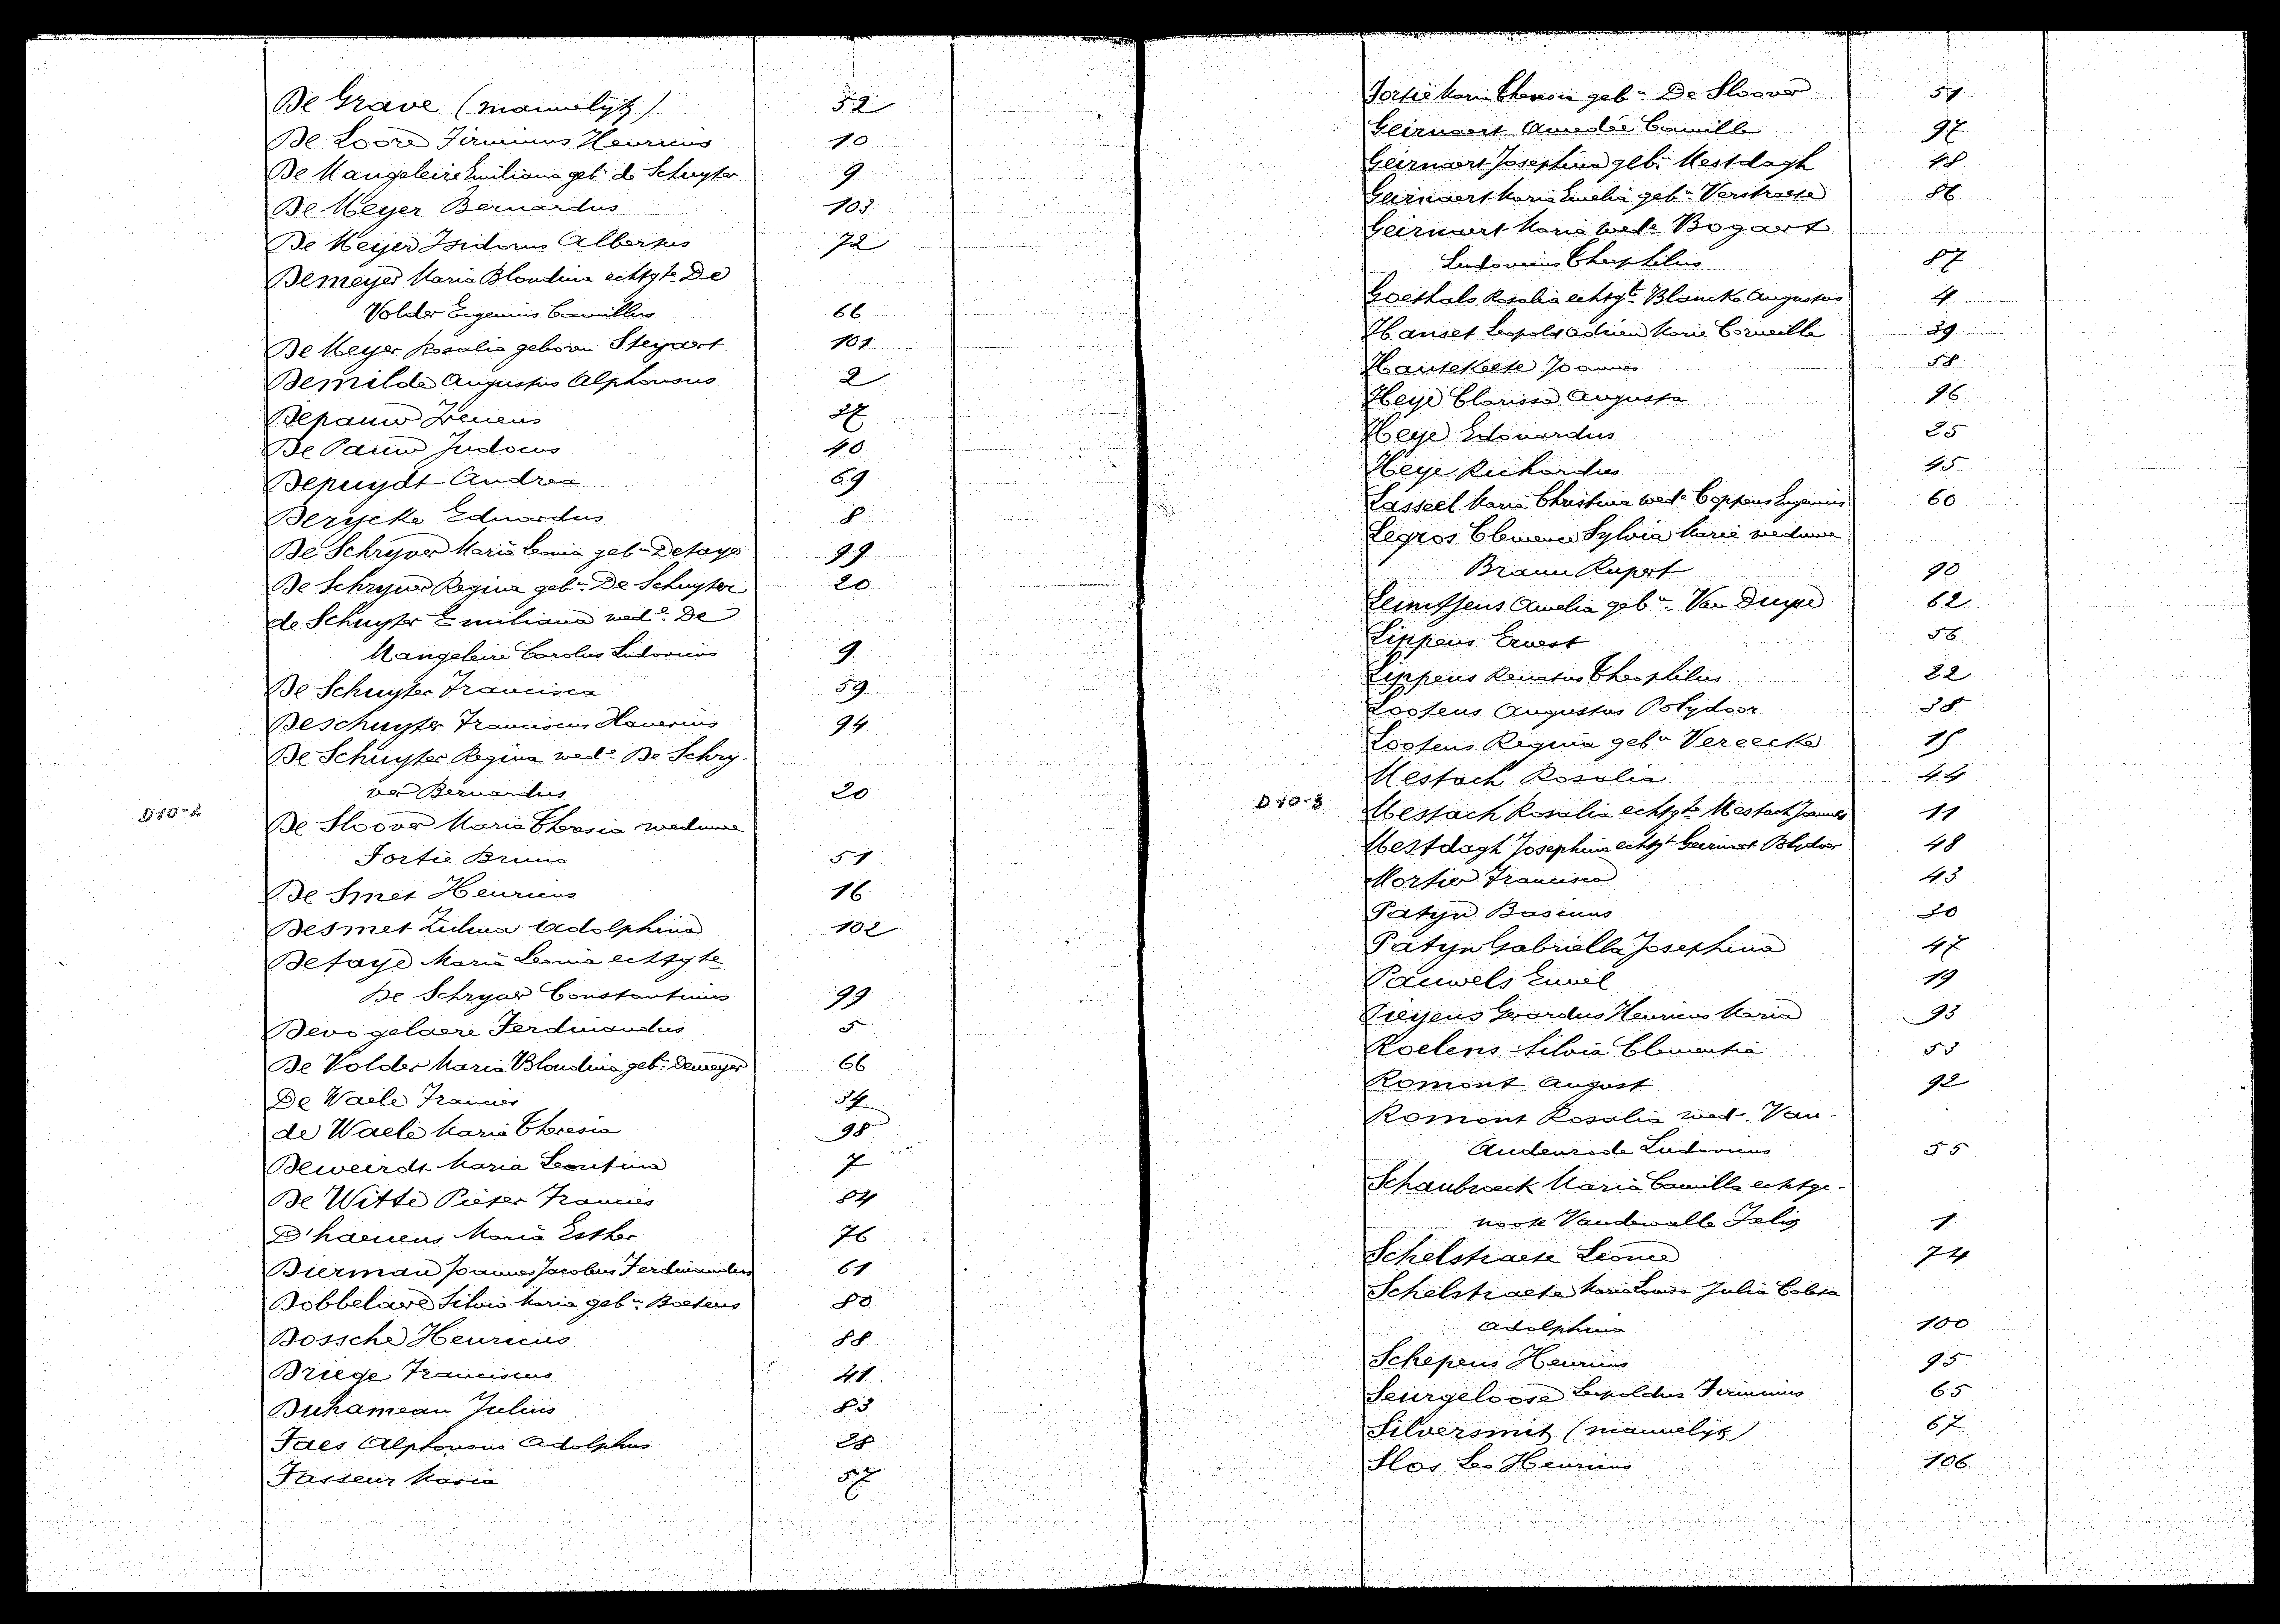 De Grave (mannelijk) 52
De Loore Firminus Henricus 10
De Mangeleire Emiliana geb.n de Schuyter 9
De Meyer Bernardus 103
De Meyer Isidorus Albertus 72
Demeyer Maria Blondina echtg.te De
Volder Eugenius Camillus 66
De Meyer Rosalia geboren Steyaert 101
Demilde Augustus Alphonsus 2
Depauw Ireneus 37
De Pauw Judocus 40
Depuydt Andrea 69
Derycke Eduardus 8
De Schryver Maria Leonia geb.n Detaye 99
De Schryver Regina geb.n De Schuyter 20
de Schuyter Emiliana wed.e De
Mangeleire Carolus Ludovicus 9
De Schuyter Francisca 59
Deschuyter Franciscus Xaverius 94
De Schuyter Regina wed.e De Schry-
ver Bernardus 20
D10-2
De Sloover Maria Theresia weduwe
Fortie Bruno 51
De Smet Henricus 16
Desmet Zulma Adolphina 102
Detaye Maria Leonia echtgte
De Schryver Constantinus 99
Devogelaere Ferdinandus 5
De Volder Maria Blondina geb.n Demeyer 66
De Waele Francies 34
de Waele Maria Theresia 98
Deweirdt Maria Leontina 7
De Witte Pieter Francies 84
D'haenens Maria Esther 76
Dierman Joannes Jacobus Ferdinandus 61
Dobbelaere Silvia Maria geb.n Baetens 80
Dossche Henricus 88
Driege Franciscus 41
Duhameau Julius 83
Faes Alphonsus Adolphus 28
Fasseur Maria 57
Fortie Maria Theresia geb.n De Sloover 51
Geirnaert Amedée Camille 97
Geirnaert Josephina geb.n Mestdagh 48
Geirnaert Maria Emelia geb.n Verstraete 86
Geirnaert Maria wed.e Bogaert
Ludovicus Theophilus 87
Goethals Rosalia echtg.te Blancke Augustus 4
Hanset Leopold Adrien Marie Corneille 39
Hautekeete Joannes 58
Heye Clarissa Augusta 96
Heye Edouardus 25
Heye Richardus 45
Lasseel Maria Christina wed.e Coppens Eugenius 60
Legros Clemence Sylvia Marie weduwe
Braun Rupert 90
Amelia geb.n Van Duyse 62
Lippens Ernest 56
Lippens Renatus Theophilus 22
Lootens Augustus Polydoor 38
Lootens Regina geb.n Vereecke 15
Mestach Rosalia 44
D10-3
Mestach Rosalia echtgte Mestach Joannes 11
Mestdagh Josephina echtgt Geirnaert Polydoor 48
Mortier Francisca 43
Patyn Basinus 30
Patyn Gabriella Josephina 47
Pauwels Emiel 19
Gerardus Henricus Maria 93
Roelens Silvia Clementia 53
Romont August 92
Romont Rosalia wed.e Van-
Audenrode Ludovicus 55
Schaubroeck Maria Camilla echtge-
noote Vandewalle Felix 1
Schelstraete Leonce 74
Schelstraete Maria Louisa Julia Coleta
Adolphina 100
Schepens Henricus 95
Seurgeloose Leopoldus Firminus 65
Silversmit (mannelijk) 67
Slos Leo Henricus 106